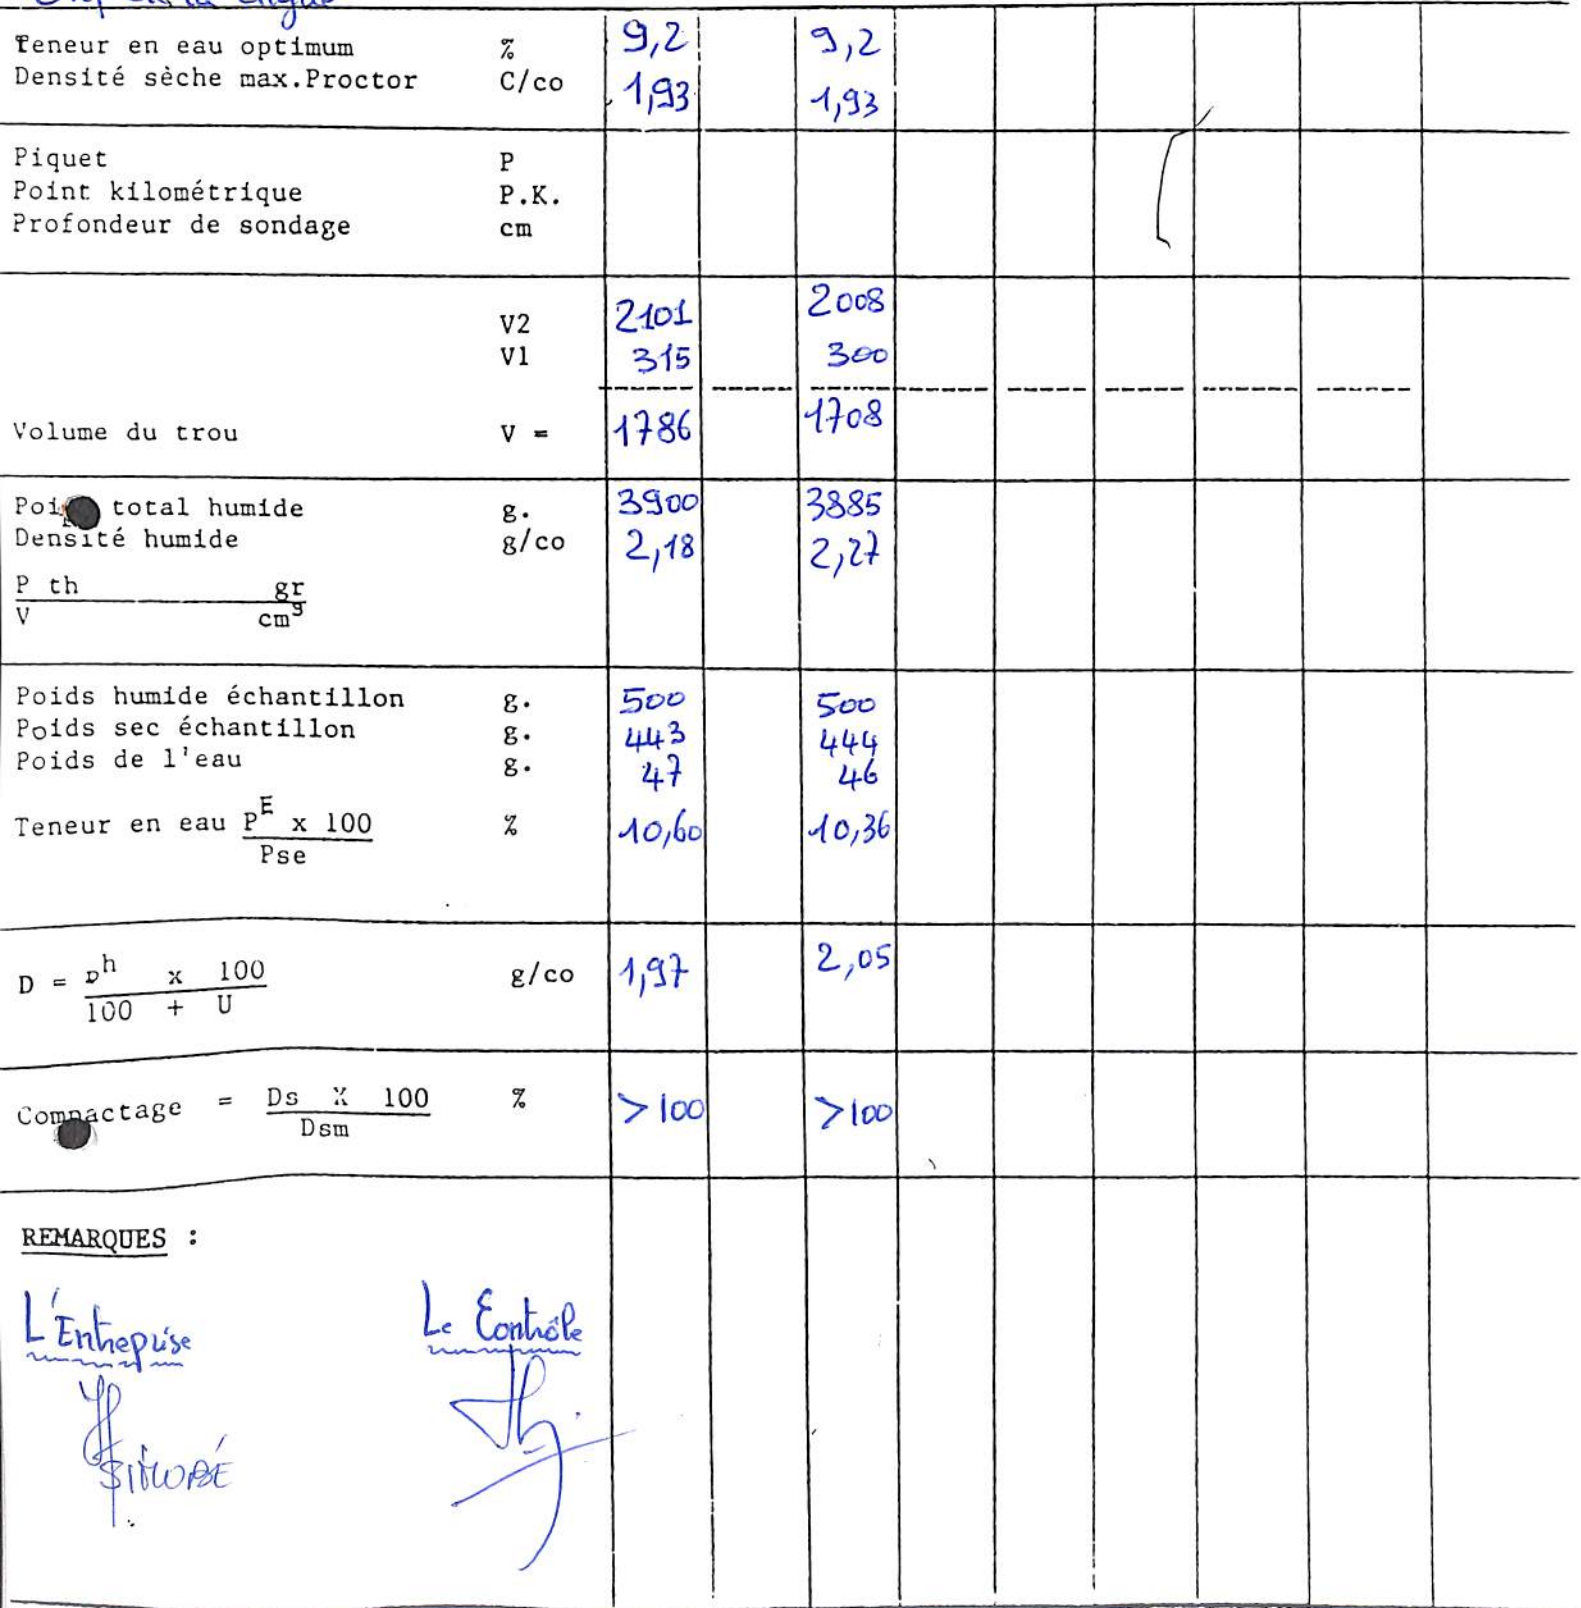 la digue
Teneur en eau optimum % 9,2 9,2
Densité sèche max.Proctor C/co 1,93 1,93
Piquet P
Point kilométrique P.K.
Profondeur de sondage cm
V2 2101 2008
V1 315 300
Volume du trou V = 1786 1708
total humide g. 3900 3885
Densité humide g/co 2,18 2,27
P th gr
V cm3
Poids humide échantillon g. 500 500
Poids sec échantillon g. 443 444
Poids de l'eau g. 47 46
Teneur en eau PE x 100 % 10,60 10,36
Pse
D = Dh x 100 g/co 1,97 2,05
100 + U
Compactage = Ds X 100 % >100 >100
Dsm
REMARQUES :
L'Entreprise Le Contrôle